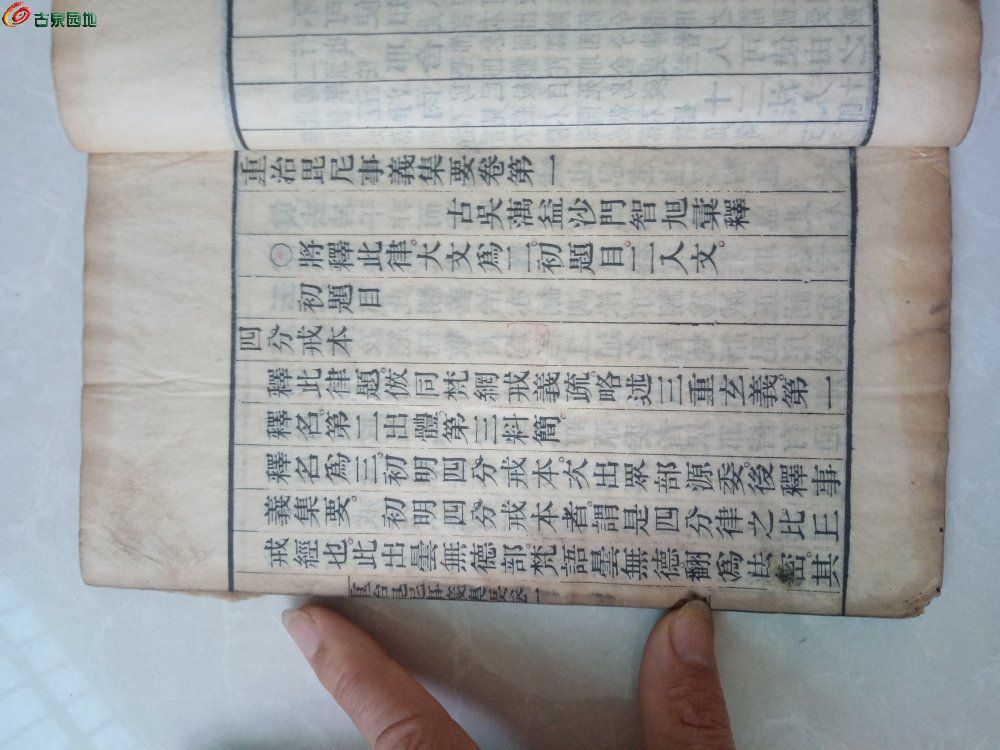 古泉园地
重治毘尼事義集要卷第一
古吳蕅益沙門智旭彙釋
將釋此律。大文爲二。初題目。二入文。
初題目
四分戒本
釋此律題。倣同梵網戒義疏。略述三重玄義。第一
釋名。第二出體。第三料簡。
釋名爲三。初明四分戒本。次出眾部源委。後釋事
義集要。初明四分戒本者。謂是四分律之比丘
戒經也。此出曇無德部。梵語曇無德。翻爲法密。其
重治毘尼事義集要卷一